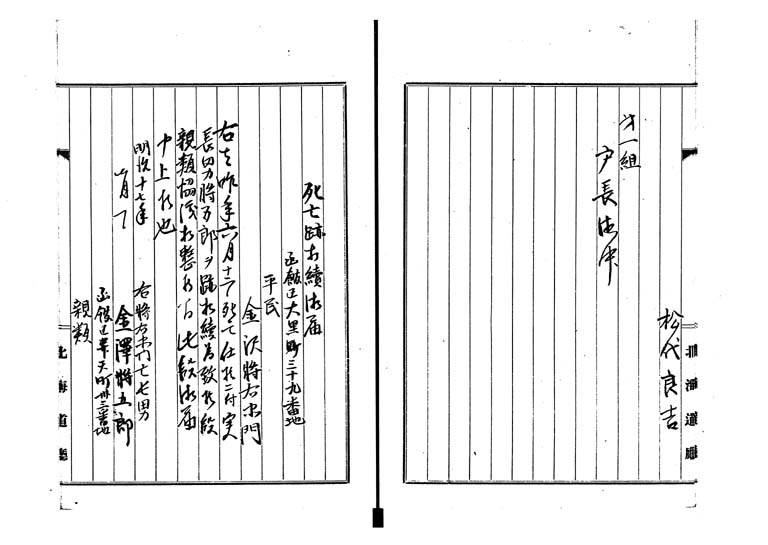 松代良吉
第一組
戸長御中
死亡跡相續御届
函館区大黒町三十九番地
平民
金沢将右衛門
右者昨年六月十二日死亡仕候ニ付実
長男将五郎ヲ跡相續為致候段
親類協議相整候間此段御届
申上候也
明治十七年
月 日
右将右衛門亡七男
金澤将五郎
函館区辨天町卅三番地
親類
北海道廳
北海道廳